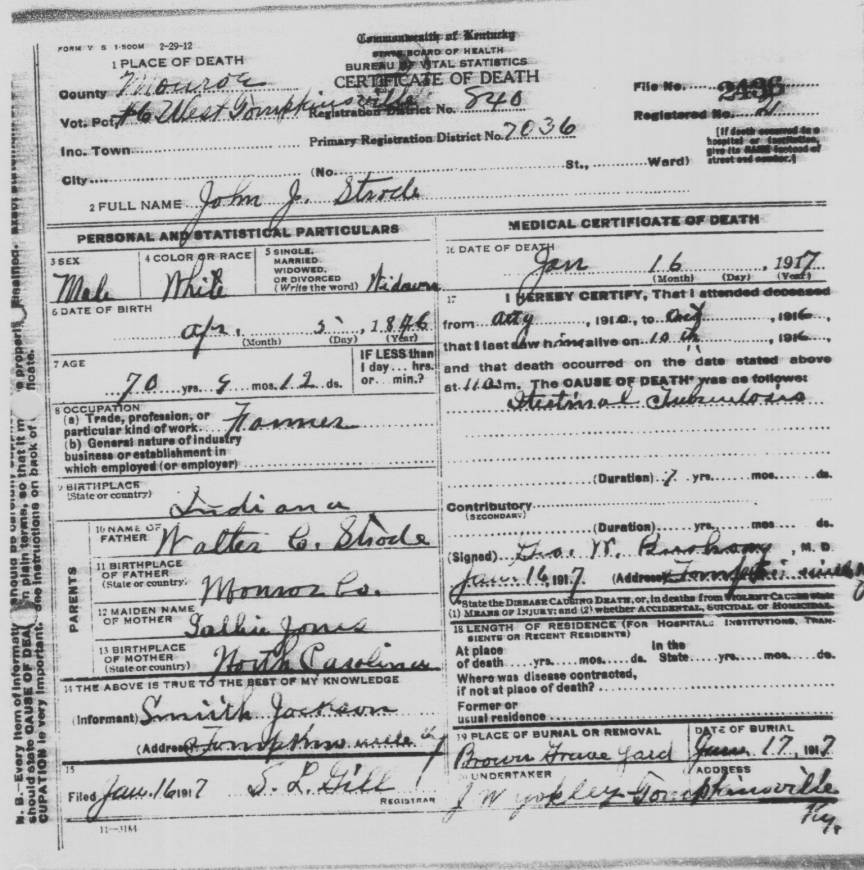 FORM V S 1-500M 2-29-12
Commonwealth of Kentucky
STATE BOARD OF HEALTH
BUREAU OF VITAL STATISTICS
CERTIFICATE OF DEATH
1 PLACE OF DEATH
County Monroe
Vot. Pct. #6 West Tompkinsville Registration District No. 840
File No. 2436
Registered No. 21
Inc. Town
Primary Registration District No. 7036
[If death occurred in a hospital or institution, give its NAME instead of street and number.]
City (No. St., Ward)
2 FULL NAME John J. Strode
PERSONAL AND STATISTICAL PARTICULARS
3 SEX
Male
4 COLOR OR RACE
White
5 SINGLE, MARRIED, WIDOWED, OR DIVORCED (Write the word)
6 DATE OF BIRTH
Apr. 5, 1846
(Month) (Day) (Year)
7 AGE
70 yrs. 9 mos. 12 ds.
IF LESS than 1 day... hrs. or... min.?
8 OCCUPATION
(a) Trade, profession, or particular kind of work Farmer
(b) General nature of industry business or establishment in which employed (or employer)
9 BIRTHPLACE
(State or country)
Indiana
PARENTS
10 NAME OF FATHER
Walter C. Strode
11 BIRTHPLACE OF FATHER (State or country)
Monroe Co.
12 MAIDEN NAME OF MOTHER
Sallie Jones
13 BIRTHPLACE OF MOTHER (State or country)
North Carolina
14 THE ABOVE IS TRUE TO THE BEST OF MY KNOWLEDGE
(Informant) Smith Jackson
(Address) Tompkinsville Ky
15
Filed Jan. 16 1917 S. L. Gill
REGISTRAR
11-3184
MEDICAL CERTIFICATE OF DEATH
16 DATE OF DEATH
Jan 16, 1917
(Month) (Day) (Year)
17 I HEREBY CERTIFY, That I attended deceased
from , 191 , to , 1916,
that I last saw him alive on 10 th, 1916,
and that death occurred on the date stated above
at 11 m. The CAUSE OF DEATH* was as follows:
Tuberculosis
(Duration) yrs. mos. ds.
Contributory
(SECONDARY)
(Duration) yrs. mos. ds.
(Signed) Geo. W. Bushong, M. D.
Jan. 16, 1917 (Address) Tompkinsville Ky
*State the DISEASE CAUSING DEATH, or, in deaths from VIOLENT CAUSES state (1) MEANS OF INJURY; and (2) whether ACCIDENTAL, SUICIDAL or HOMICIDAL.
18 LENGTH OF RESIDENCE (FOR HOSPITALS, INSTITUTIONS, TRANSIENTS OR RECENT RESIDENTS)
At place of death yrs. mos. ds. In the State yrs. mos. ds.
Where was disease contracted, if not at place of death?
Former or usual residence
19 PLACE OF BURIAL OR REMOVAL
Brown Grave Yard
DATE OF BURIAL
Jan. 17, 1917
20 UNDERTAKER
J W Yokley
ADDRESS
Tompkinsville Ky.